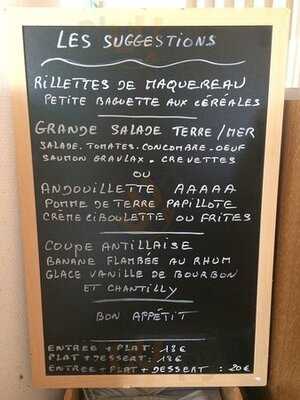 LES SUGGESTIONS
RILLETTES DE MAQUEREAU
PETITE BAGUETTE AUX CÉRÉALES
GRANDE SALADE TERRE/MER
SALADE. TOMATES. CONCOMBRE. OEUF
SAUMON GRAVLAX. CREVETTES
OU
ANDOUILLETTE AAAAA
POMME DE TERRE PAPILLOTE
CRÈME CIBOULETTE OU FRITES
COUPE ANTILLAISE
BANANE FLAMBÉE AU RHUM
GLACE VANILLE DE BOURBON
ET CHANTILLY
BON APPÉTIT
ENTREE + PLAT: 18€
PLAT + DESSERT: 18€
ENTREE + PLAT + DESSERT : 20€